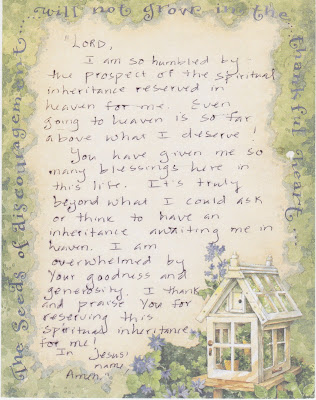 The Seeds of discouragement...
...will not grove in the...
...thankful heart
"LORD,
I am so humbled by
the prospect of the spiritual
inheritance reserved in
heaven for me. Even
going to heaven is so far
above what I deserve!
You have given me so
many blessings here in
this life. It's truly
beyond what I could ask
or think to have an
inheritance awaiting me in
heaven. I am
overwhelmed by
Your goodness and
generosity. I thank
and praise You for
reserving this
spiritual inheritance
for me!
In Jesus'
name,
Amen."